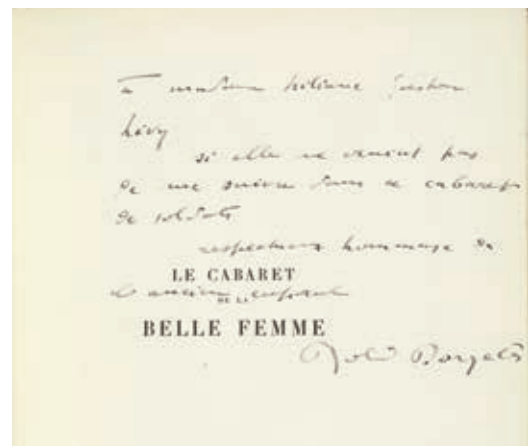 à madame Liliane Gaston
Lévy
si elle ne craint pas
de me suivre dans ce cabaret
de soldats
respectueux hommage de
LE CABARET
l'ancien caporal
DE LA
BELLE FEMME
Roland Dorgelès